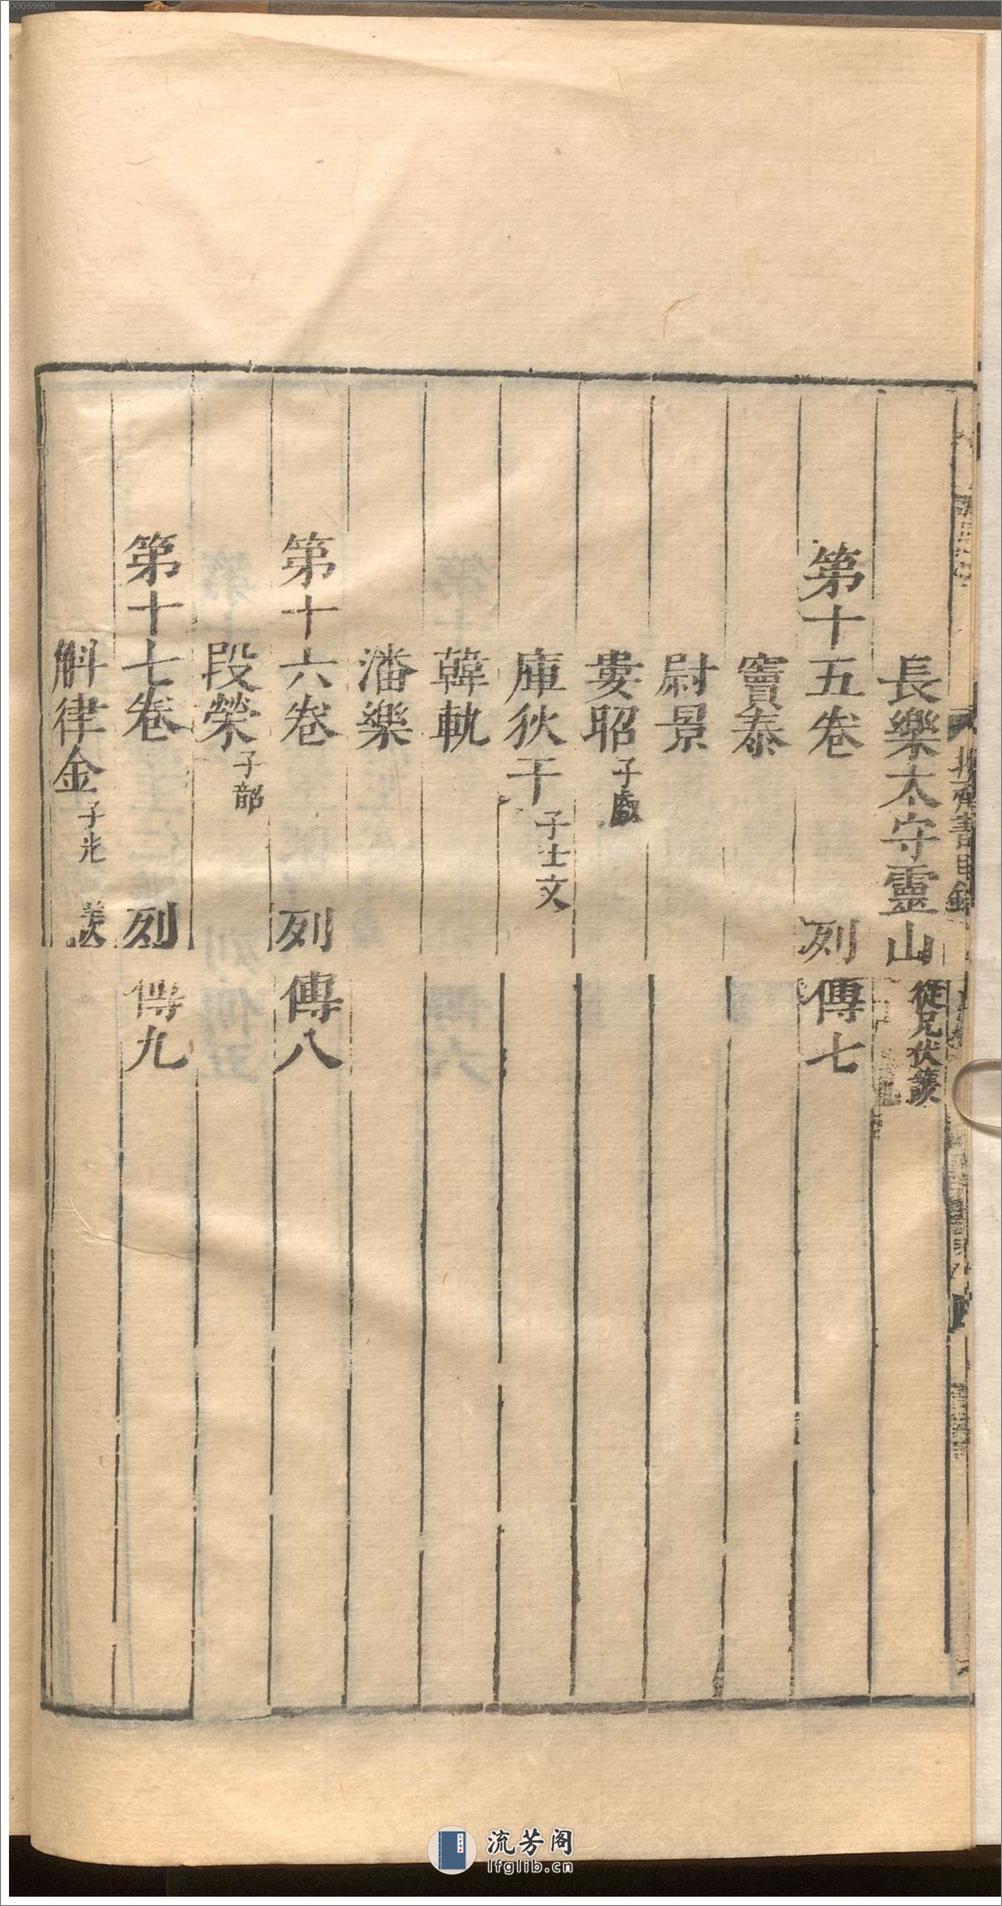 00059906
長樂太守靈山 從兄伏護
第十五卷 列傳七
竇泰
尉景
婁昭 子叡
庫狄干 子士文
韓軌
潘樂
第十六卷 列傳八
段榮 子韶
第十七卷 列傳九
斛律金 子光 羨
流芳阁
lfglib.cn